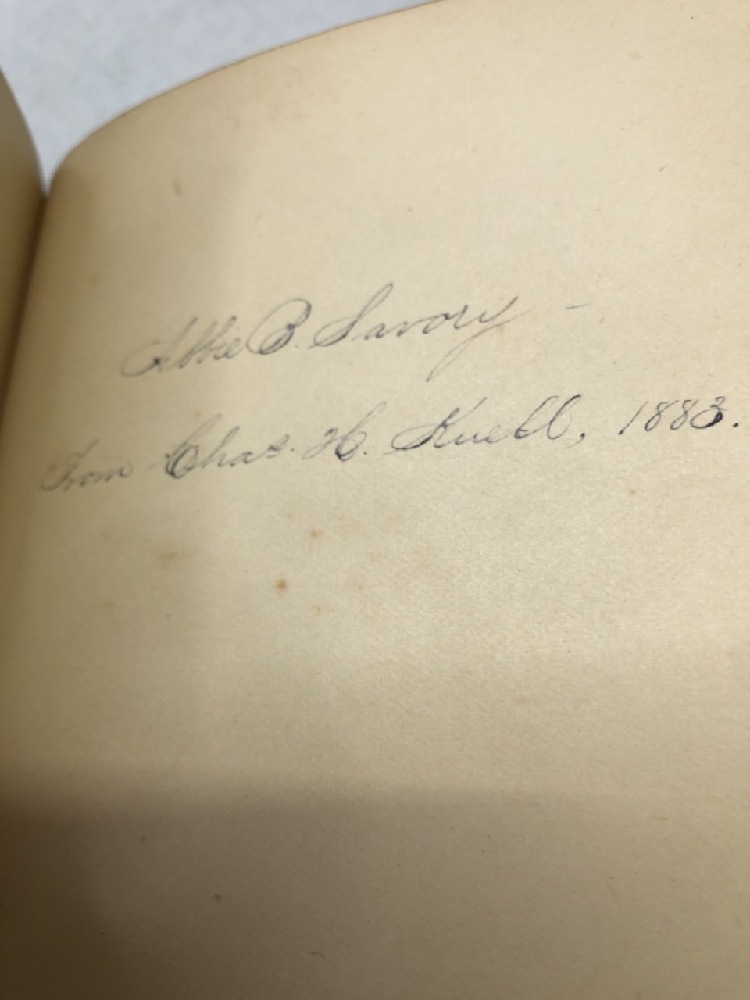 Abbie B. Savory -
From Chas. H. Knell, 1883.